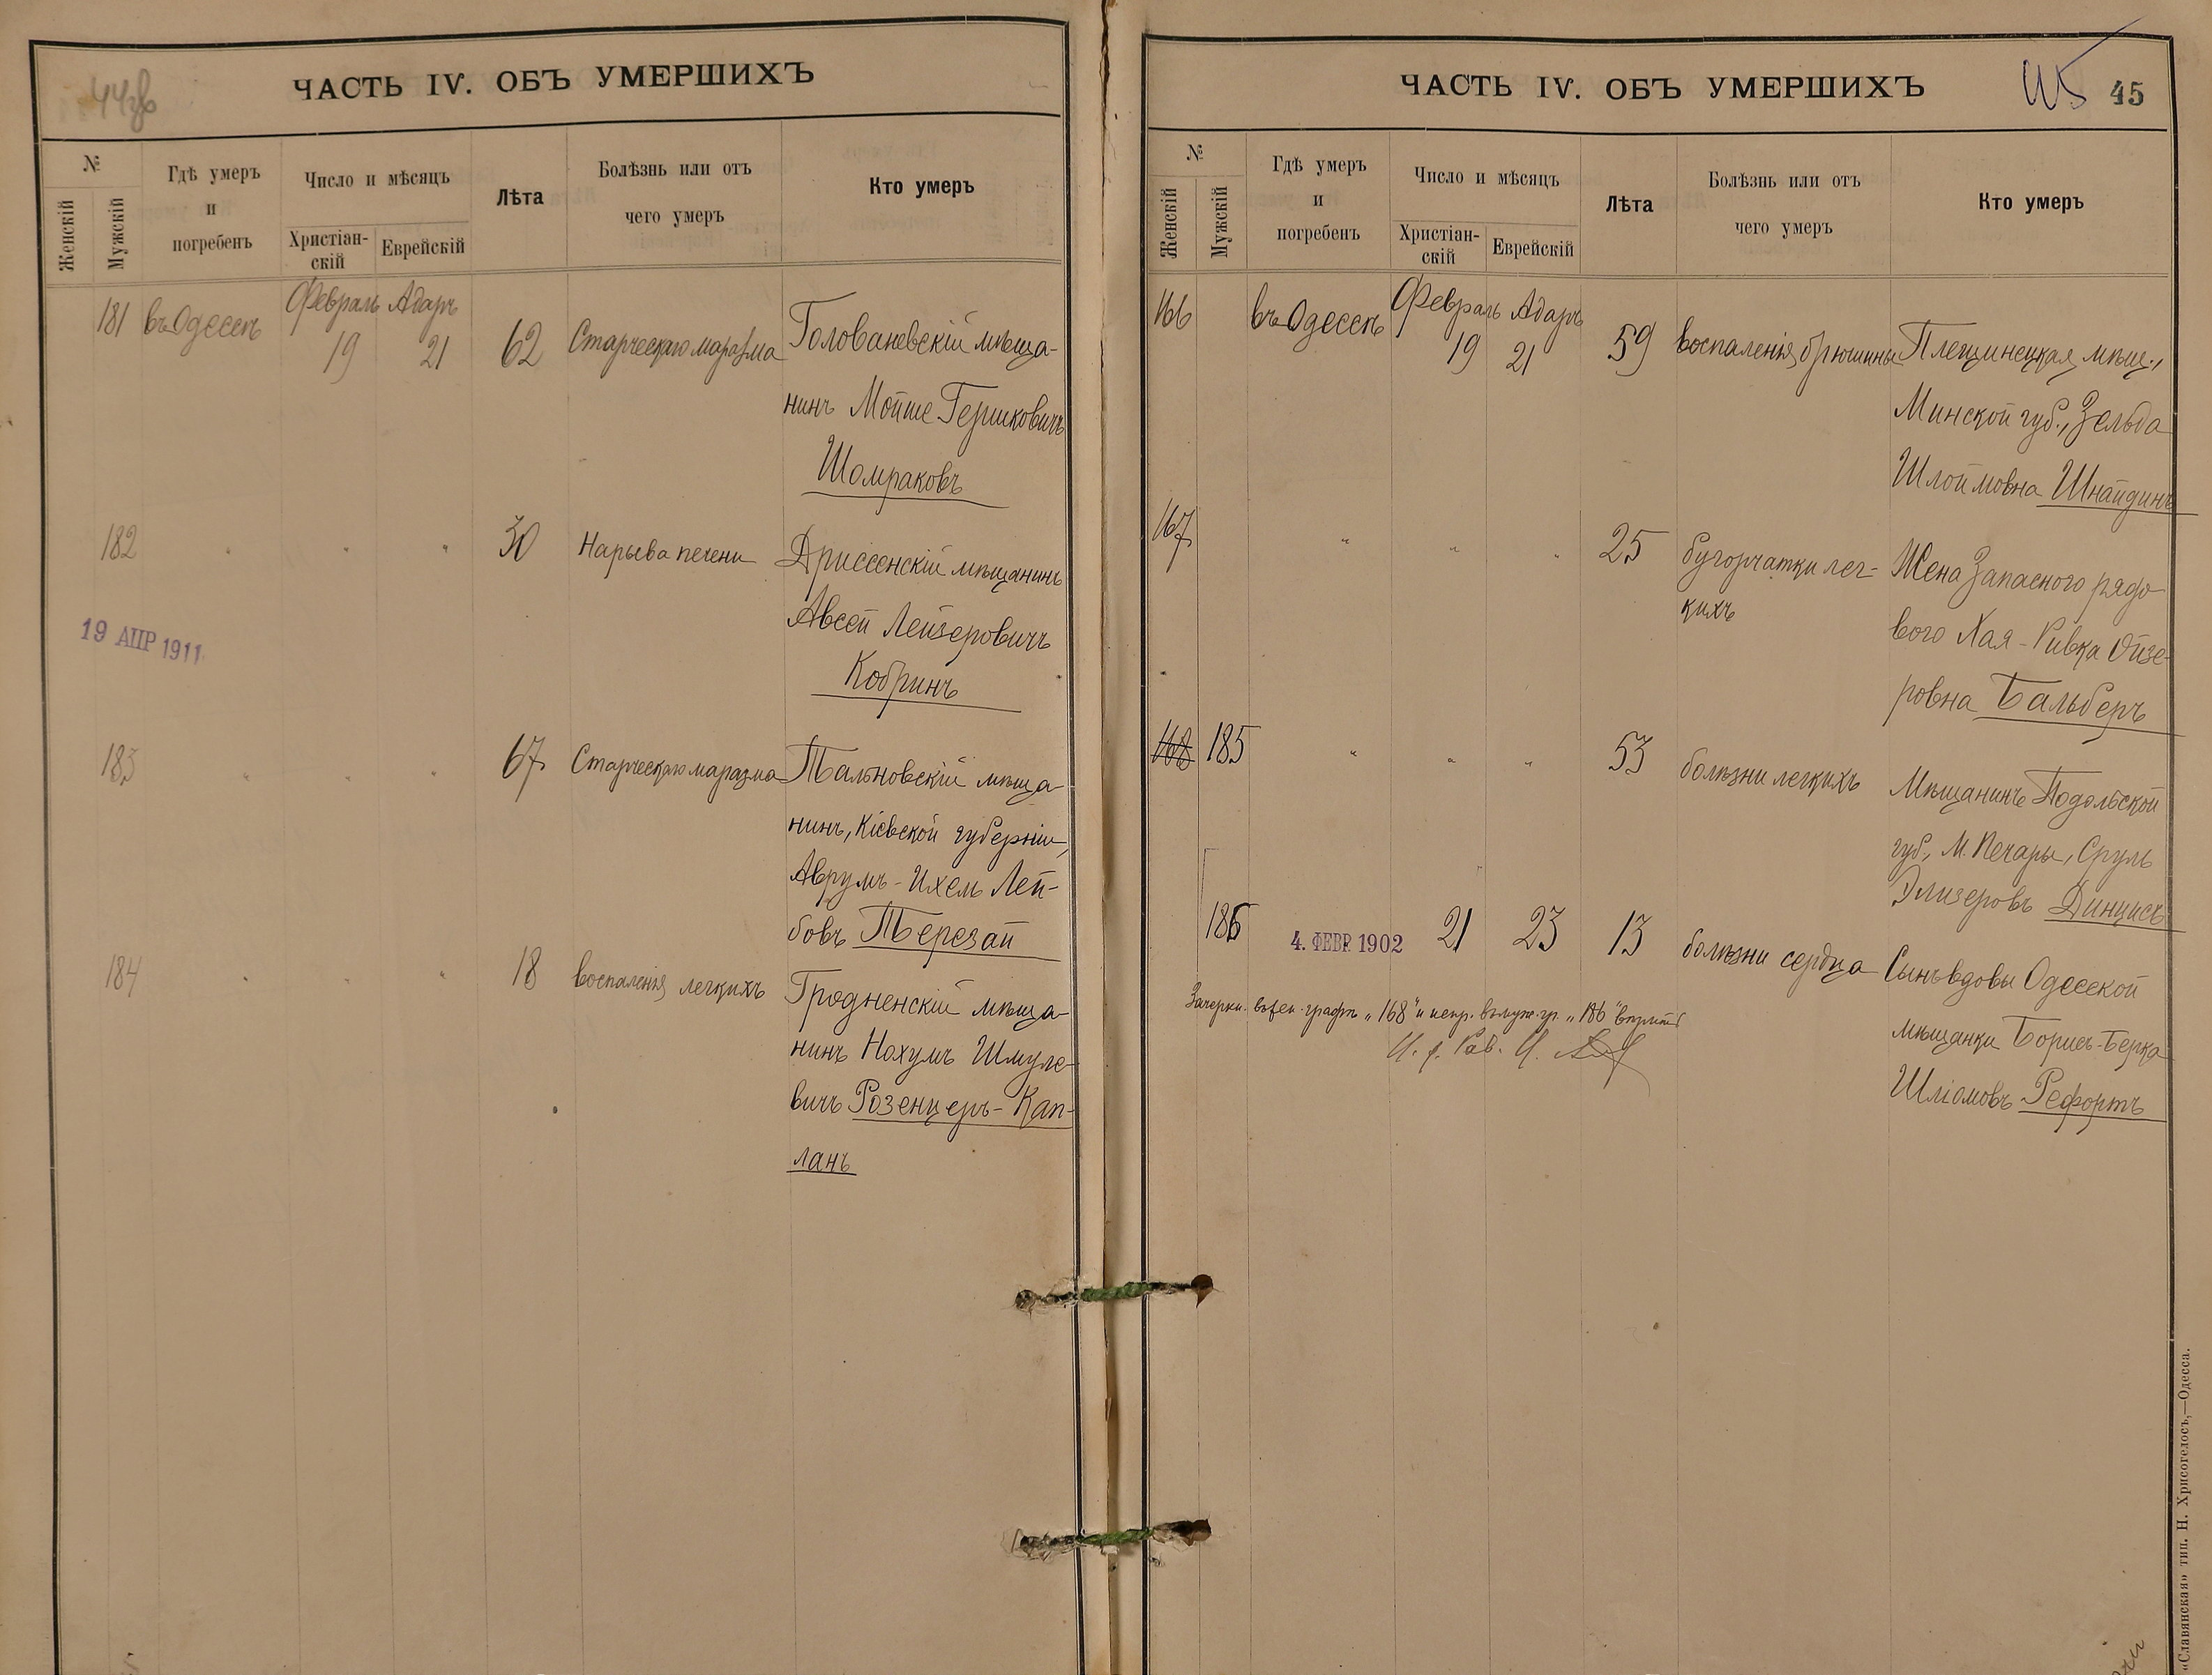 44зв
ЧАСТЬ IV. ОБЪ УМЕРШИХЪ
№
Женскій
Мужскій
Гдѣ умеръ
и
погребенъ
Число и мѣсяцъ
Христіан-
скій
Еврейскій
Лѣта
Болѣзнь или отъ
чего умеръ
Кто умеръ
181 въ Одессѣ Февраль Адаръ
19 21 62 Старческаго маразма Голованевскій мѣща-
нинъ Мойше Гершковичъ
Шомраковъ
182 " " " 30 Нарыва печени Дриссенскій мѣщанинъ
Авсей Лейзеровичъ
Кобринъ
19 АПР 1911
183 " " " 67 Старческаго маразма Тальновскій мѣща-
нинъ, Кіевской губерніи,
Аврумъ-Ихель Лей-
бовъ Терезай
184 " " " 18 воспаленія легкихъ Гродненскій мѣща-
нинъ Нохумъ Шмуле-
вичъ Розенцеръ-Кап-
ланъ
ЧАСТЬ IV. ОБЪ УМЕРШИХЪ
45
№
Женскій
Мужскій
Гдѣ умеръ
и
погребенъ
Число и мѣсяцъ
Христіан-
скій
Еврейскій
Лѣта
Болѣзнь или отъ
чего умеръ
Кто умеръ
166 въ Одессѣ Февраль Адаръ
19 21 59 воспаленія брюшины Плещинецкая мѣщ.,
Минской губ., Зельда
Шлоймовна Шнайдинъ
167 " " " 25 бугорчатки лег-
кихъ
Жена Запасного рядо
вого Хая-Ривка Ойзе-
ровна Бальберъ
168 185 " " " 53 болѣзни легкихъ Мѣщанинъ Подольской
губ., М. Печары, Сруль
Элизеровъ Динцисъ
186 4. ФЕВР. 1902 21 23 13 болѣзни сердца Сынъ вдовы Одесской
мѣщанки Борисъ-Берка
Шліомовъ Рефортъ
Зачеркн. въ жен. графѣ „168" и испр. въ муж. гр. „186"
И. о. Рав.
«Славянская» тип. Н. Хрисогелосъ,—Одесса.